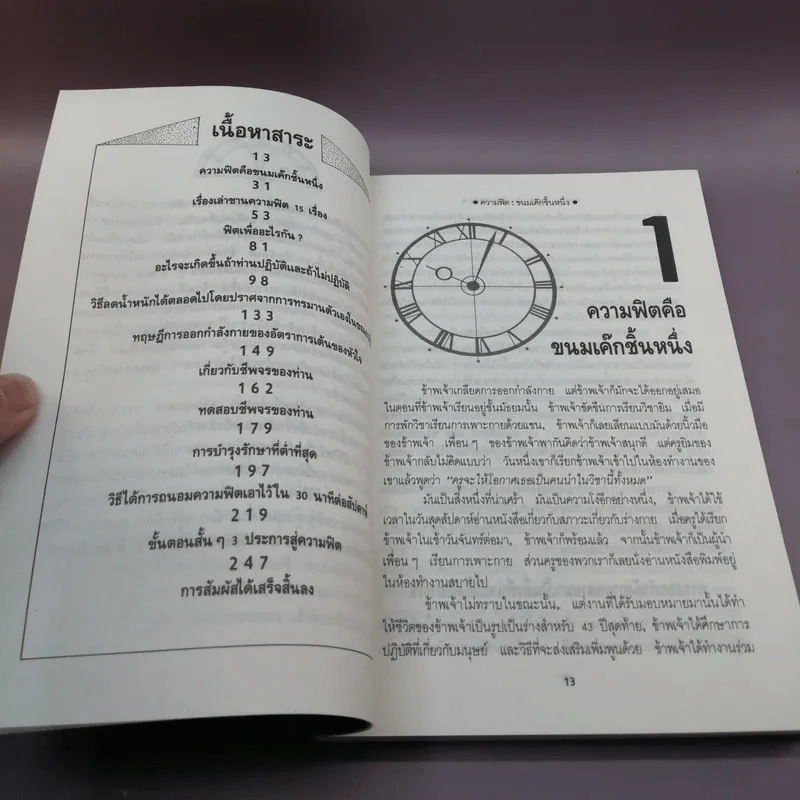 เนื้อหาสาระ
13
ความฟิตคือขนมเค๊กชิ้นหนึ่ง
31
เรื่องเล่าขานความฟิต 15 เรื่อง
53
ฟิตเพื่ออะไรกัน ?
81
อะไรจะเกิดขึ้นถ้าท่านปฏิบัติและถ้าไม่ปฏิบัติ
98
วิธีลดน้ำหนักได้ตลอดไปโดยปราศจากการทรมานตัวเอง
133
ทฤษฎีการออกกำลังกายของอัตราการเต้นของหัวใจ
149
เกี่ยวกับชีพจรของท่าน
162
ทดสอบชีพจรของท่าน
179
การบำรุงรักษาที่ต่ำที่สุด
197
วิธีได้การถนอมความฟิตเอาไว้ใน 30 นาทีต่อสัปดาห์
219
ขั้นตอนสั้น ๆ 3 ประการสู่ความฟิต
247
การสัมผัสได้เสร็จสิ้นลง
● ความฟิต : ขนมเค๊กชิ้นหนึ่ง ●
1
ความฟิตคือ
ขนมเค๊กชิ้นหนึ่ง
ข้าพเจ้าเกลียดการออกกำลังกาย แต่ข้าพเจ้าก็มักจะได้ออกอยู่เสมอ
ในตอนที่ข้าพเจ้าเรียนอยู่ชั้นมัธยมนั้น ข้าพเจ้าขัดขืนการเรียนวิชายิม เมื่อมี
การพักวิชาเรียนการเพาะกายด้วยแขน, ข้าพเจ้าก็เลยเลียนแบบมันด้วยนิ้วมือ
ของข้าพเจ้า เพื่อน ๆ ของข้าพเจ้าพากันคิดว่าข้าพเจ้าสนุกดี แต่ครูยิมของ
ข้าพเจ้ากลับไม่คิดแบบว่า วันหนึ่งเขาก็เรียกข้าพเจ้าเข้าไปในห้องทำงานของ
เขาแล้วพูดว่า "ครูจะให้โอกาศเธอเป็นคนนำในวิชานี้ทั้งหมด"
มันเป็นสิ่งหนึ่งที่น่าเศร้า มันเป็นความโง่อีกอย่างหนึ่ง, ข้าพเจ้าได้ใช้
เวลาในวันสุดสัปดาห์อ่านหนังสือเกี่ยวกับสภาวะเกี่ยวกับร่างกาย เมื่อครูได้เรียก
ข้าพเจ้าในเช้าวันจันทร์ต่อมา, ข้าพเจ้าก็พร้อมแล้ว จากนั้นข้าพเจ้าก็เป็นผู้นำ
เพื่อน ๆ เรียนการเพาะกาย ส่วนครูของพวกเราก็เลยนั่งอ่านหนังสือพิมพ์อยู่
ในห้องทำงานสบายไป
ข้าพเจ้าไม่ทราบในขณะนั้น, แต่งานที่ได้รับมอบหมายมานั้นได้ทำ
ให้ชีวิตของข้าพเจ้าเป็นรูปเป็นร่างสำหรับ 43 ปีสุดท้าย, ข้าพเจ้าได้ศึกษาการ
ปฏิบัติที่เกี่ยวกับมนุษย์ และวิธีที่จะส่งเสริมเพิ่มพูนด้วย ข้าพเจ้าได้ทำงานร่วม
13